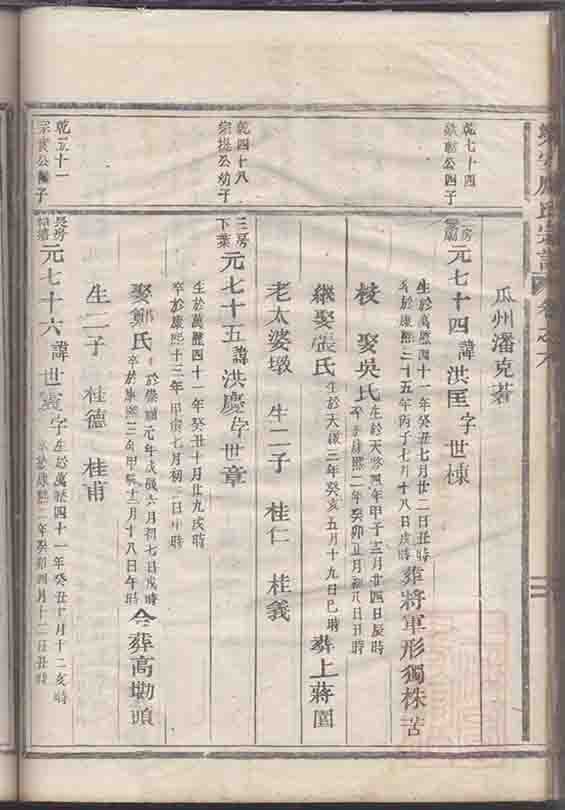 瓜州潘克荖
乾七十四
公四子
房
元七十四諱洪匡字世棟
生於萬曆四十一年癸丑七月廿二日丑時
名於康熙二十五年丙子七月十八日戌時
葬將軍形獨株苦
枝 娶吳氏
生於天啓四年甲子三月廿四日辰時
卒於康熙二年癸卯正月初八日丑時
繼娶張氏
生於天啟三年癸亥五月十九日巳時
葬上蔣園
老太婆墩 生二子 桂仁 桂義
乾四十八
宗提公幼子
三房
下葉
元七十五諱洪慶字世章
生於萬曆四十一年癸丑十月廿九戌時
卒於康熙十三年甲寅七月初二日小時
娶鄭氏
於崇禎元年戊辰六月初七日戌時
卒於康熙三年甲辰十二月十八日午時
仝葬高墈頭
生二子 桂德 桂甫
乾五十一
宗公子
長房
元七十六諱世字
生於萬曆四十一年癸丑十月十二亥時
卒於康熙二年癸卯四月十二日丑時
氏宗譜
卷之六